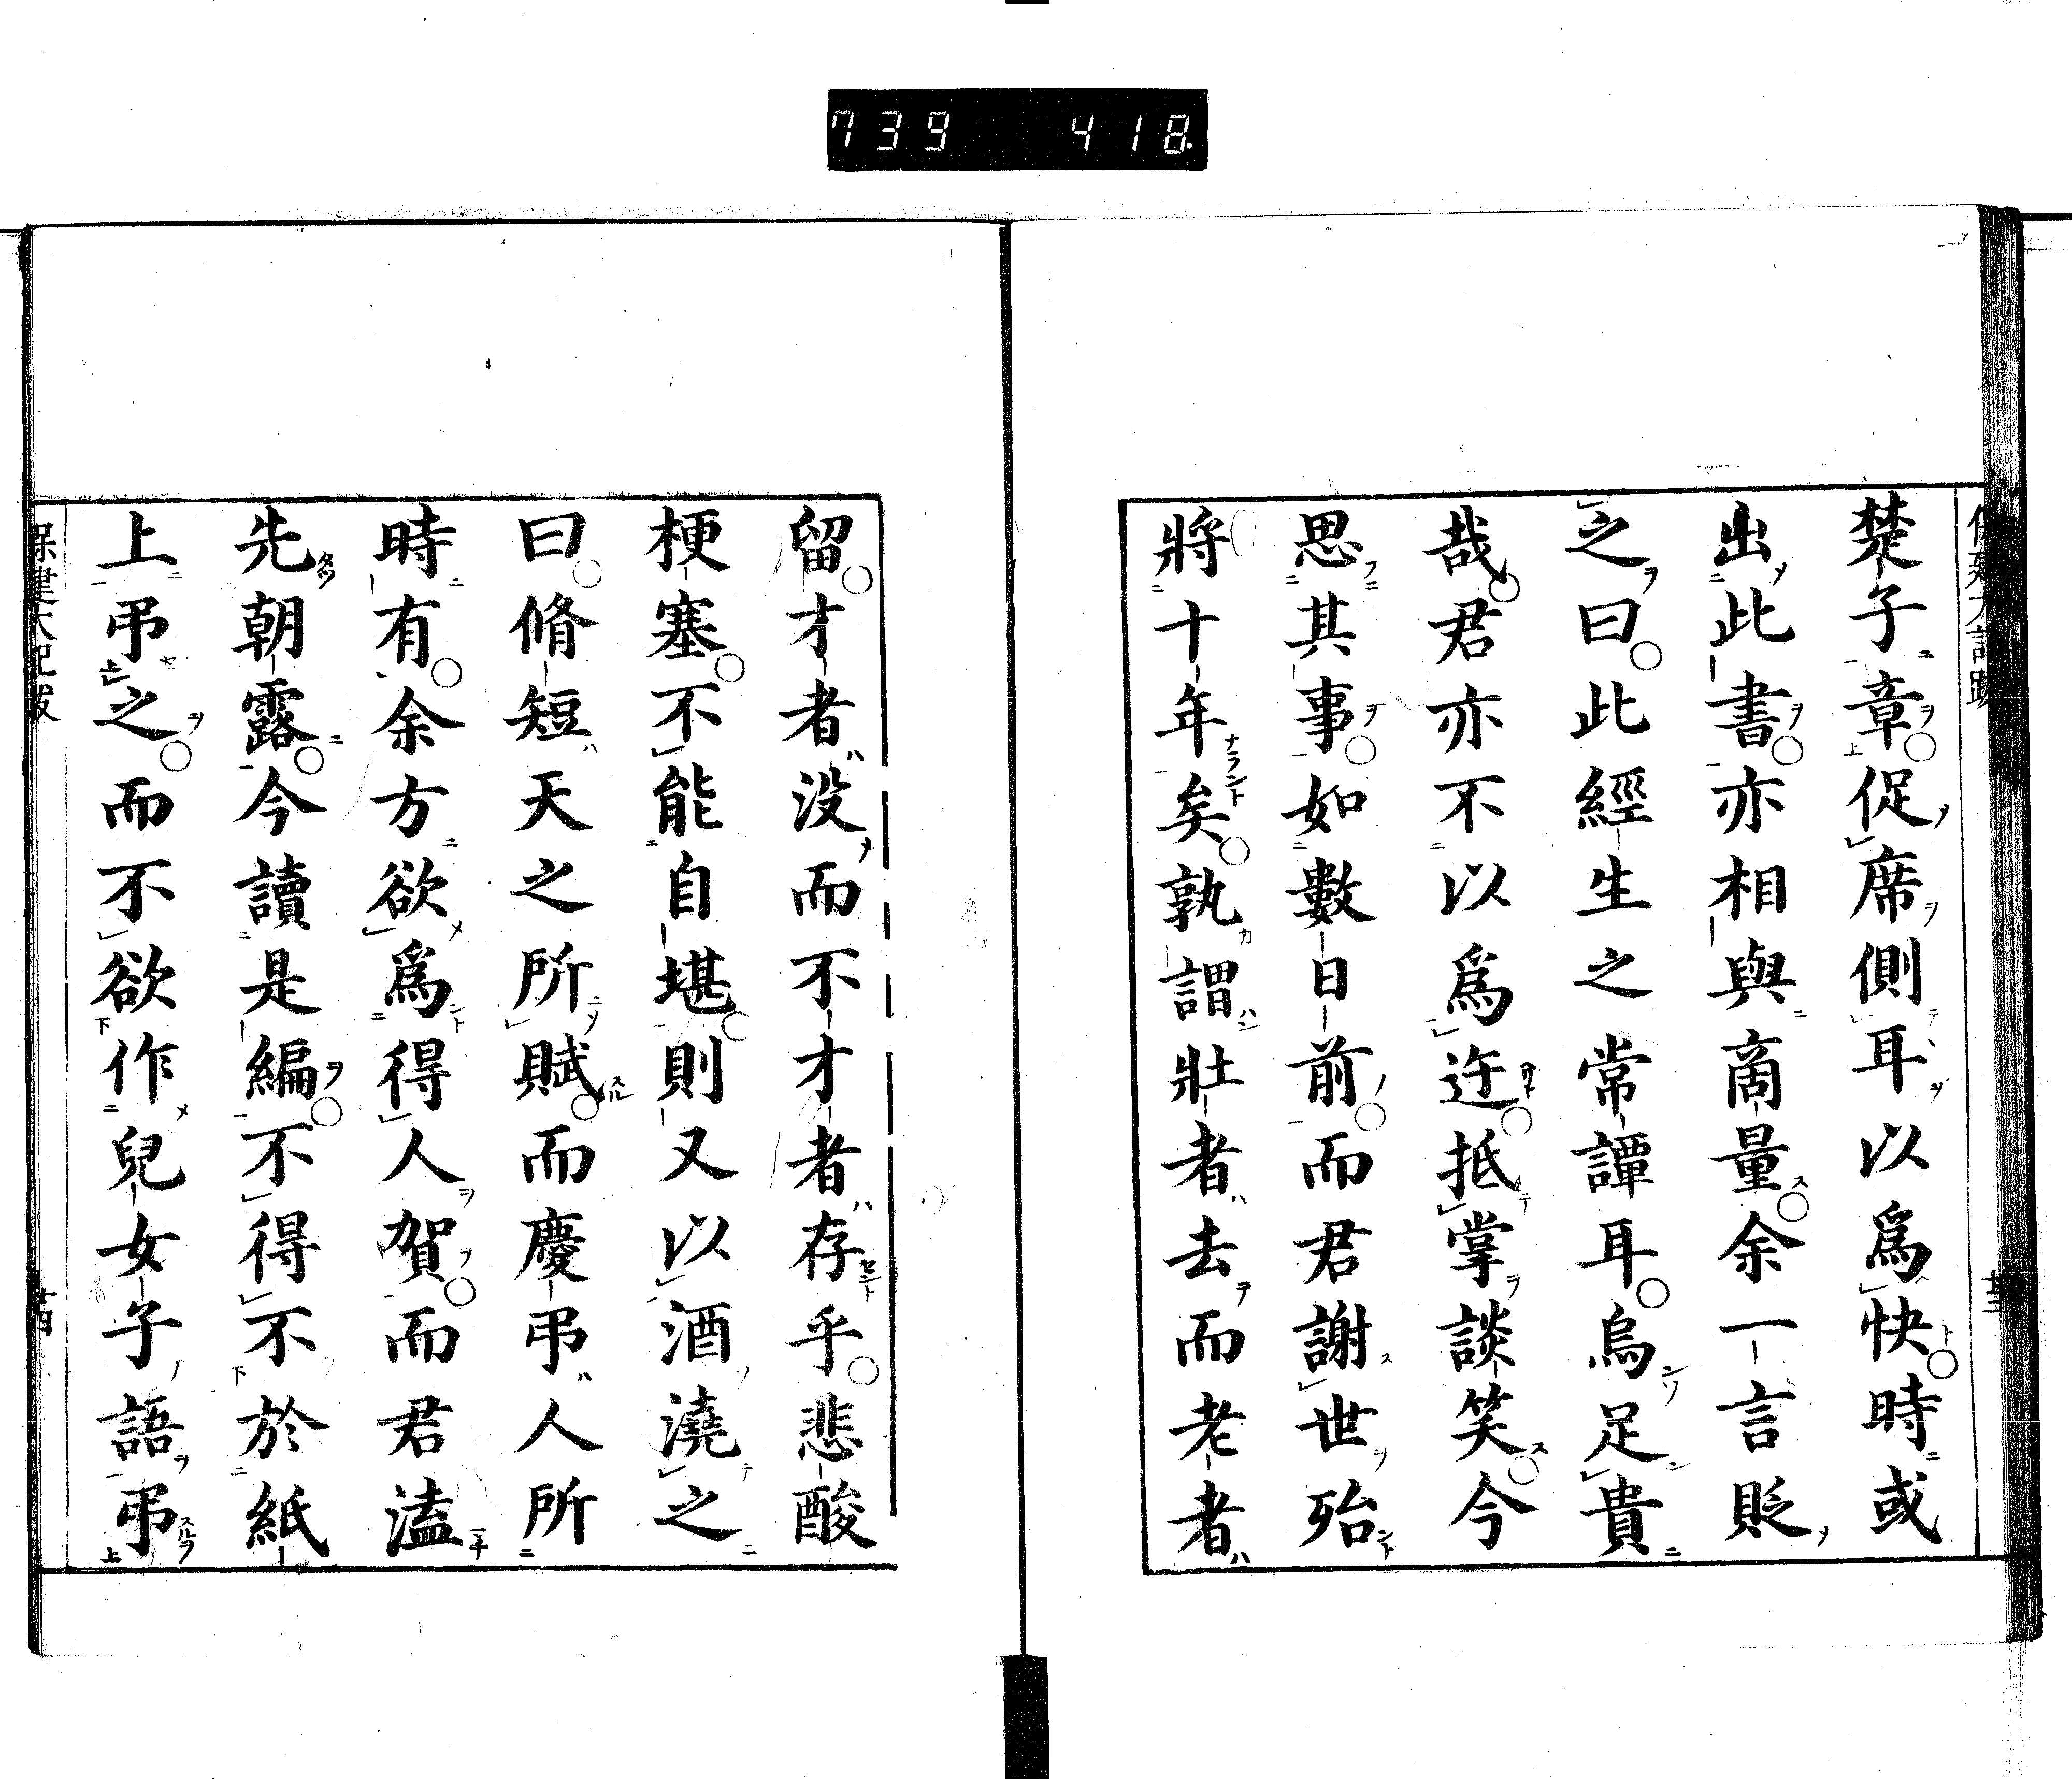 739 418.
楚子章促席側耳以爲快時或
出此書亦相與商量余一言貶
之曰此經生之常譚耳烏足貴
哉君亦不以爲迂抵掌談笑今
思其事如數日前而君謝世殆
將十年矣孰謂壯者去而老者
留才者没而不才者存乎悲酸
梗塞不能自堪則又以酒澆之
曰脩短天之所賦而慶弔人所
時有余方欲爲得人賀而君溘
先朝露今讀是編不得不於紙
上弔之而不欲作兒女子語弔
保建大記跋
廿四